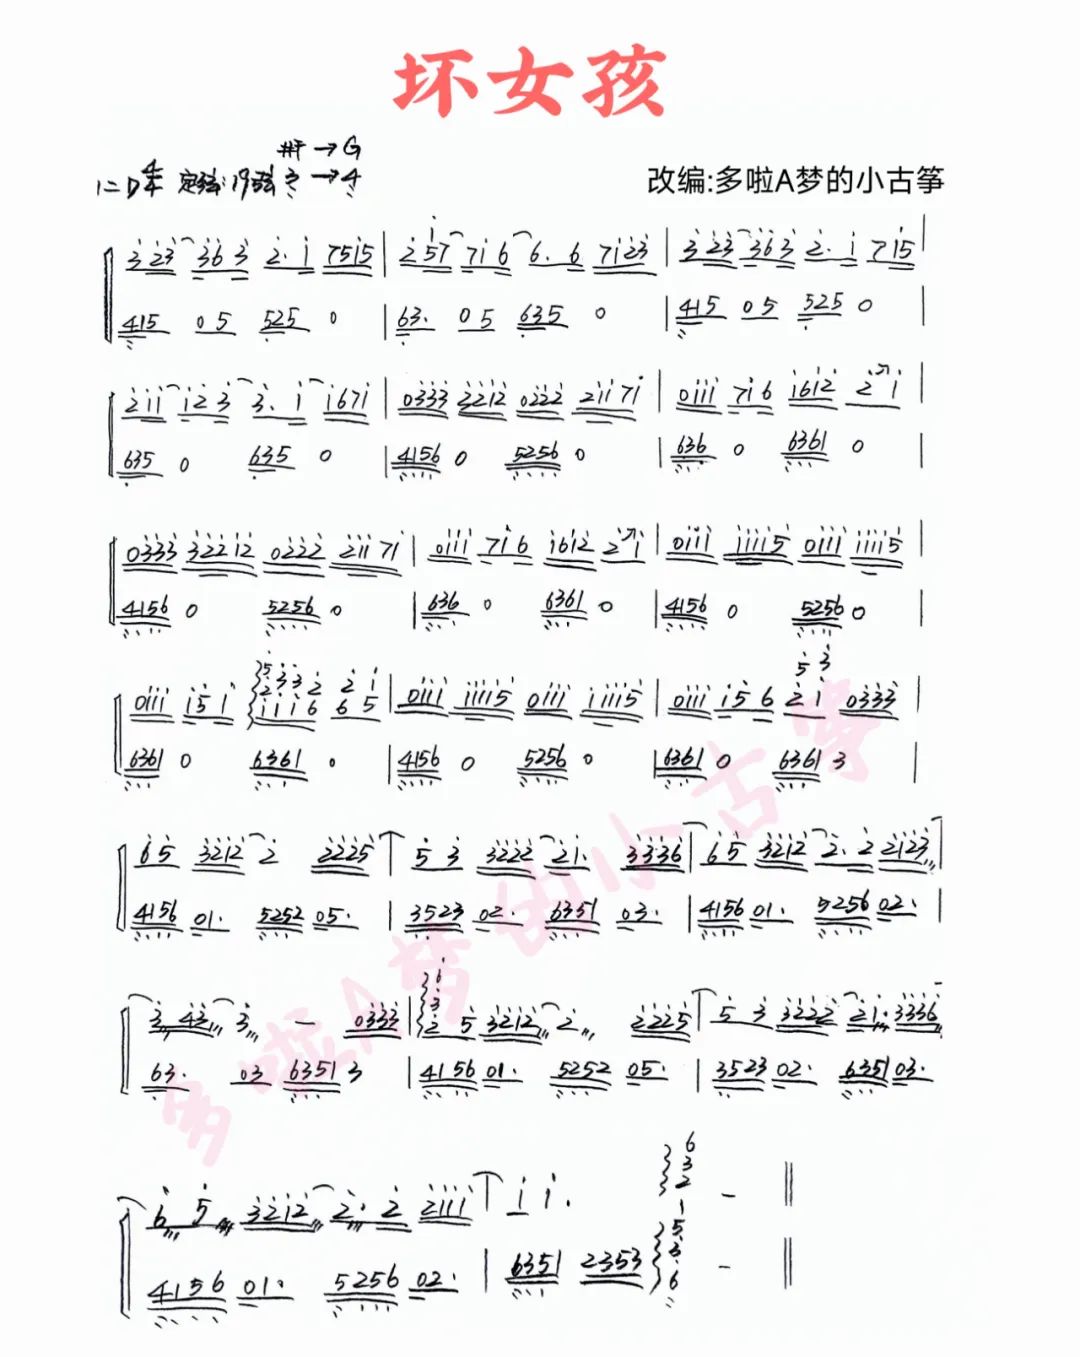 坏女孩
#F→G
1=D 4/4 定弦:19弦 3→4
改编:多啦A梦的小古筝
323 363 2·1 7515 | 2 57 716 6·6 7123 | 323 363 2·1 715 |
415 05 525 0 | 63· 05 635 0 | 415 05 525 0 |
211 123 3·1 1671 | 0333 2212 0222 21171 | 0111 716 1612 2↗1 |
635 0 635 0 | 4156 0 5256 0 | 636 0 6361 0 |
0333 32212 0222 21171 | 0111 716 1612 2↗1 | 0111 11115 0111 11115 |
4156 0 5256 0 | 636 0 6361 0 | 4156 0 5256 0 |
0111 151 | 0111 11115 0111 11115 | 0111 156 21 0333 |
6361 0 6361 0 | 4156 0 5256 0 | 6361 0 6361 3 |
65 3212 2 2225 | 53 3222 21· 3336 | 65 3212 2·2 2123 |
4156 01· 5252 05· | 3523 02· 6351 03· | 4156 01· 5256 02· |
3 43 3 — 0333 | 25 3212 2 2225 | 53 3222 21· 3336
63· 03 6351 3 | 4156 01· 5252 05· | 3523 02· 6351 03·
65 3212 2·2 2111 | 1 1· — ||
4156 01· 5256 02· | 6351 2353 — ||
多啦A梦的小古筝